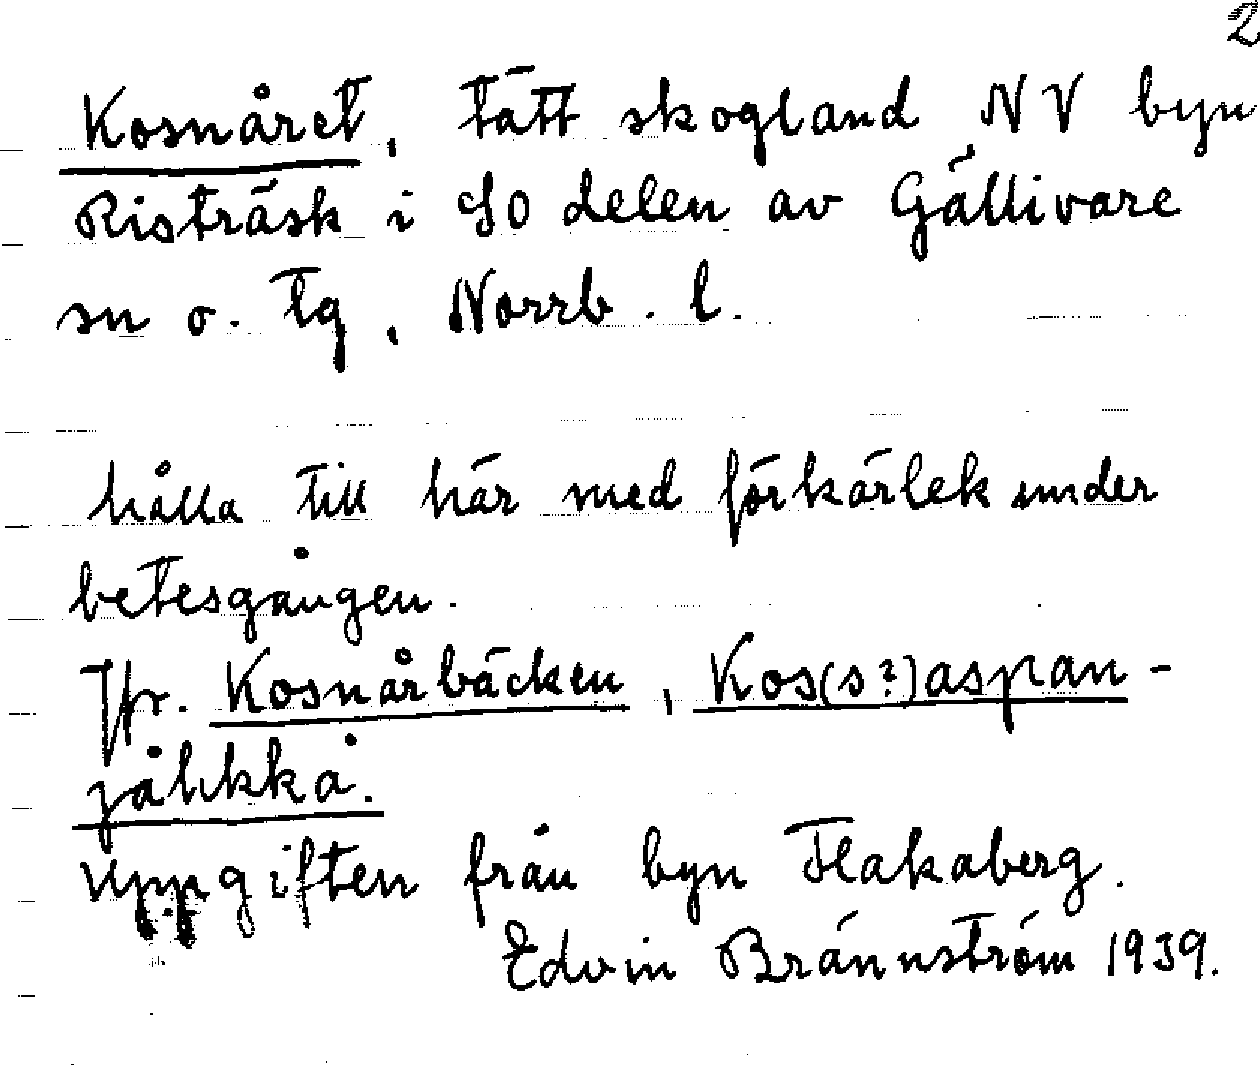 2
Kosnåret, tätt skogland NV byn
Risträsk i SO delen av Gällivare
sn o. tg, Norrb. l.
hålla till här med förkärlek under
betesgången.
Jfr. Kosnårbäcken, Kos(s?)aspan-
jåhkkå.
Uppgiften från byn Flakaberg.
Edvin Brännström 1939.